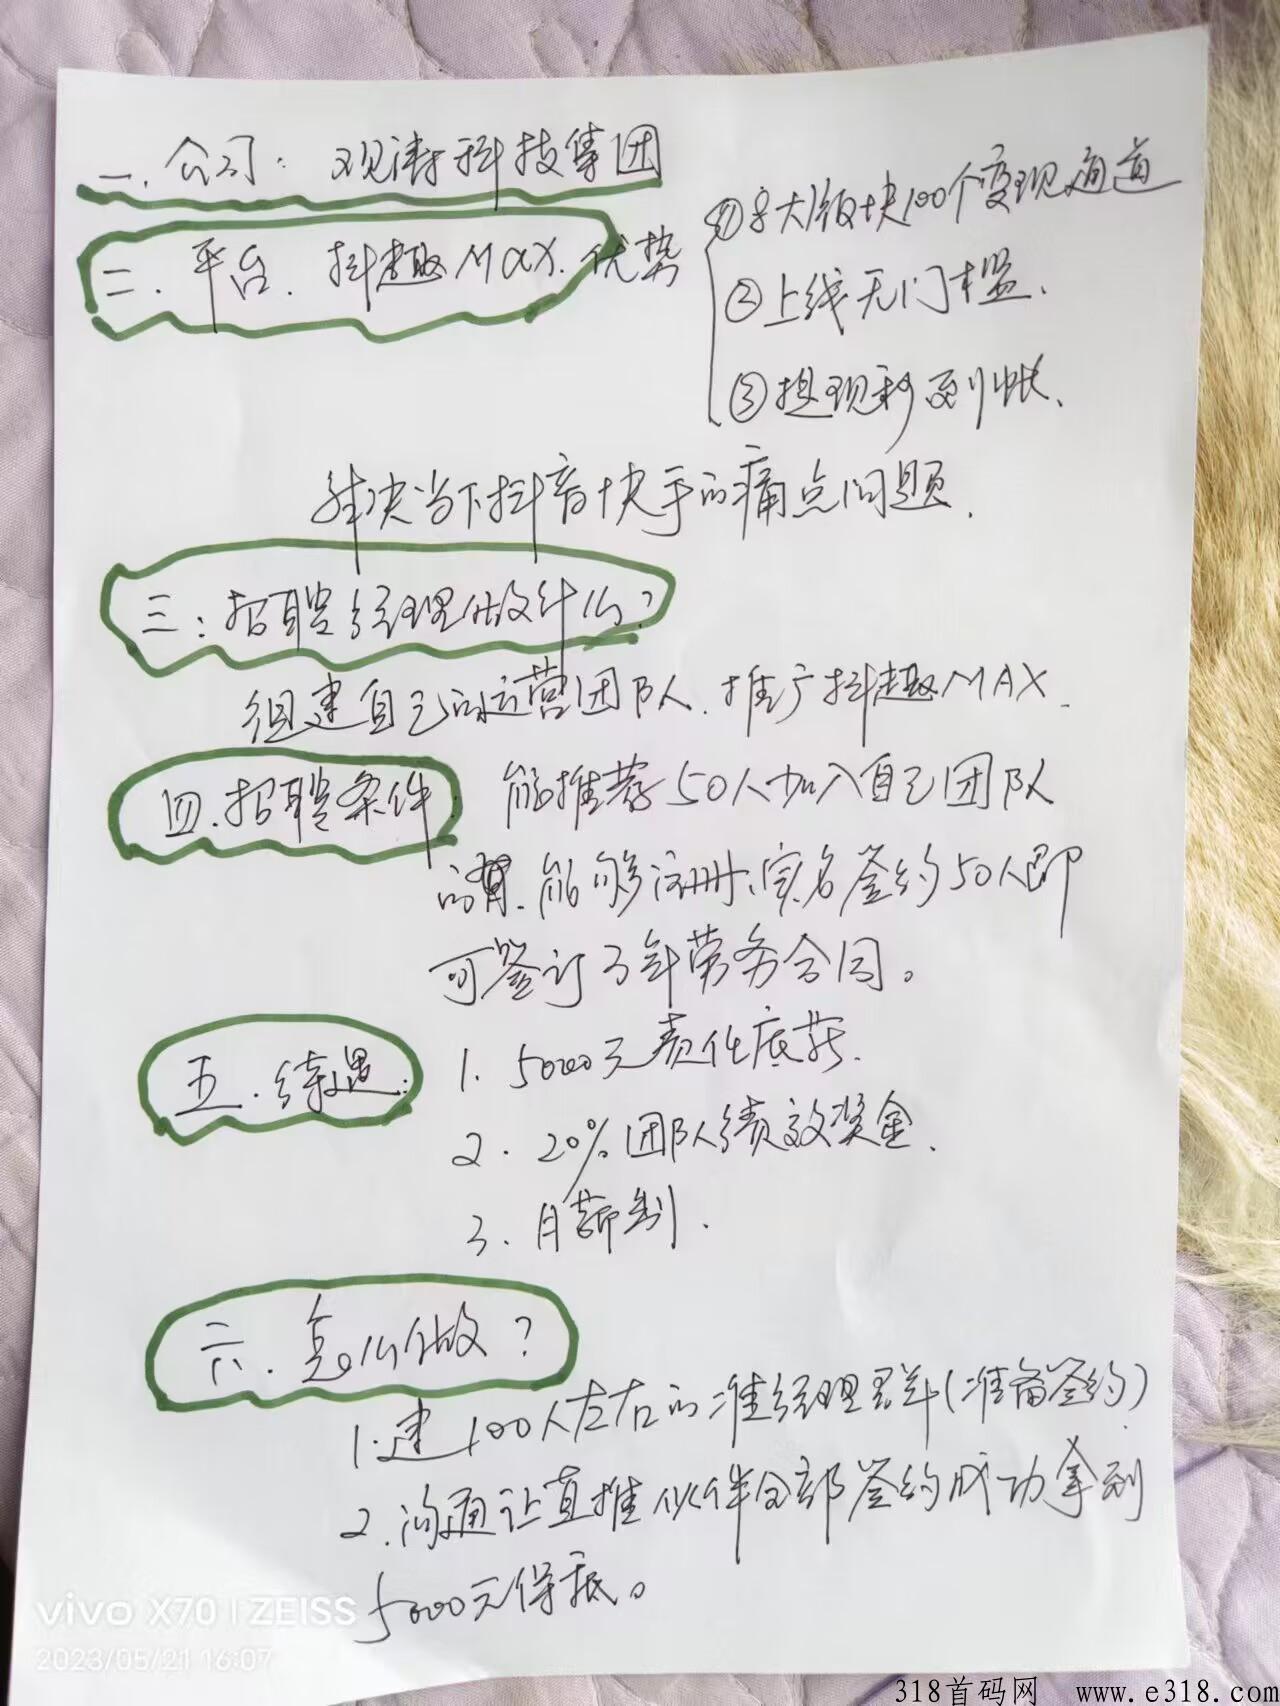 一.公司：观涛科技集团
二.平台.抖趣MAX.优势
①8大版块100个变现通道
②上线无门槛.
③提现秒到帐.
解决当下抖音快手的痛点问题.
三：招聘经理做什么？
组建自己的运营团队.推广抖趣MAX.
四.招聘条件：能推荐50人加入自己团队
的.能够注册、实名签约50人即
可签订3年劳务合同。
五.待遇：1.5000元责任底薪.
2.20%团队绩效奖金.
3.月薪制.
六.怎么做？
1.建100人左右的准经理群(准备签约)
2.沟通让直推伙伴全部签约成功拿到
5000元保底。
vivo X70 | ZEISS
2023/05/21 16:07
318首码网 www.e318.com